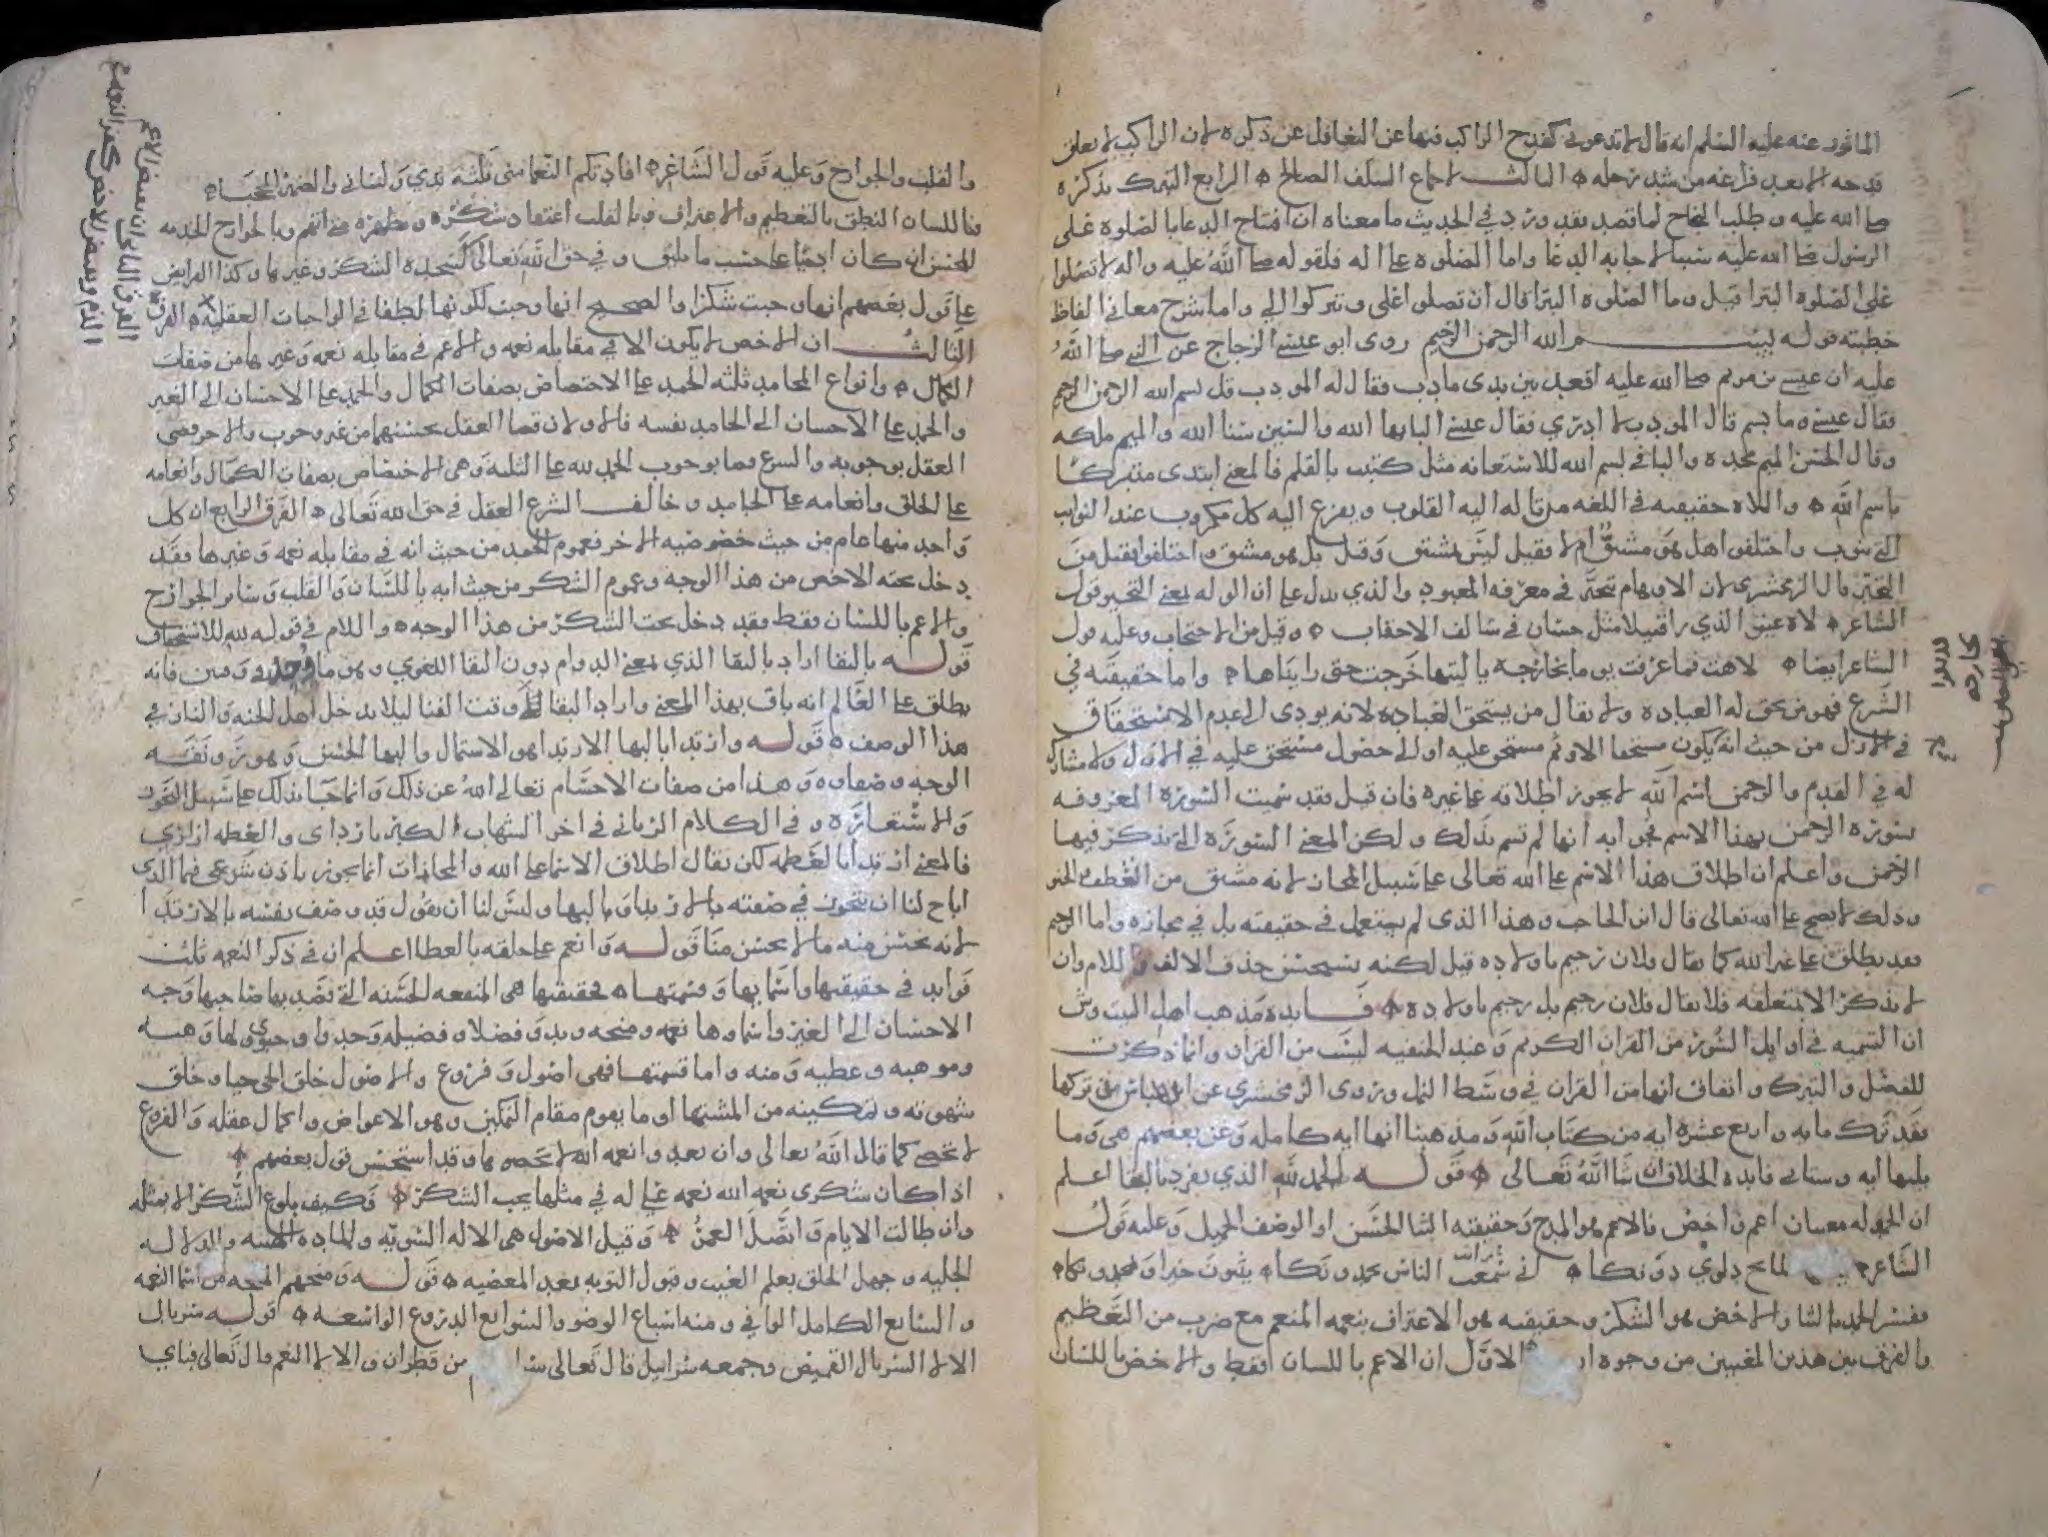 الماثور عنه عليه السلم انه قال لا تدعوني كقدح الراكب فنها عن التغافل عن ذكره لان الراكب لا يعلق
قدحه الا بعد فراغه من شد رحله الثالث لاجماع السلف الصالح الرابع التبرك بذكره
صلى الله عليه وطلب النجاح لما قصد فقد ورد في الحديث ما معناه ان افتتاح الدعا بالصلوه على
الرسول صلى الله عليه سببا لاجابه الدعا واما الصلوه على اله فلقوله صلى الله عليه واله لا تصلوا
علي الصلوه البترا قيل وما الصلوه البترا قال ان تصلوا علي وتتركوا الي واما شرح معاني الفاظ
خطبته قوله بسم الله الرحمن الرحيم روى ابو عيسى الزجاج عن النبي صلى الله
عليه ان عيسى بن مريم صلى الله عليه اقعد بين يدى مادب فقال له المودب قل بسم الله الرحمن الرحيم
فقال عيسى وما بسم قال المودب لا ادري فقال عيسى البا بها الله والسين سنا الله والميم ملكه
وقال الحسن الميم مجده والبا في بسم الله للاستعانه مثل كتبت بالقلم فالمعنى ابتدى متبركا
باسم الله والاله حقيقته في اللغه من تاله اليه القلوب ويفزع اليه كل مكروب عند النوايب
التي تنوب واختلفوا هل هو مشتق ام لا فقيل ليس بمشتق وقيل بل هو مشتق واختلفوا فقيل من
التحير قال الزمخشرى لان الاوهام تتحير في معرفه المعبود والذي يدل على ان الوله بمعنى التحير قول
الشاعر لاه عيني الذي راقبيلا مثل حسان في سالف الاحقاب وقيل من الاحتجاب وعليه قول
الشاعر ايضا لاهت فما عرفت يوما بخارجه يا ليتها خرجت حتى رايناها واما حقيقته في
الشرع فهو من يحق له العباده ولا يقال من يستحق العباده لانه يودى الى عدم الاستحقاق
في الازل من حيث انه يكون مستحقا الا وثم مستحق عليه او الى حصول مستحق عليه في الازل ولا مشارك
له في القدم والرحمن اسم لله لا يجوز اطلاقه على غيره فان قيل فقد سميت السوره المعروفه
بسوره الرحمن بهذا الاسم فجوابه انها لم تسم بذلك ولكن المعنى السوره التي يذكر فيها
الرحمن واعلم ان اطلاق هذا الاسم على الله تعالى على سبيل المجاز لانه مشتق من العطف والحنو
وذلك لا يصح على الله تعالى قال ابن الحاجب وهذا الذى لم يستعمل في حقيقته بل في مجازه واما الرحيم
فقد يطلق على غير الله كما يقال فلان رحيم باولاده قيل لكنه يستحسن حذف الالف واللام وان
لا يذكر الا بمتعلقه فلا يقال فلان رحيم بل رحيم باولاده فايده مذهب اهل البيت وش
ان التسميه في اوايل السور من القران الكريم وعند الحنفيه ليست من القران وانما ذكرت
للفصل والتبرك واتفاق انها من القران في وسط النمل وروى الزمخشري عن ابن عباس من تركها
فقد ترك مايه واربع عشره ايه من كتاب الله ومذهبنا انها ايه كامله وعن بعضهم هي وما
يليها ايه وستاتي فايده الخلاف ان شا الله تعالى قوله الحمد لله الذي تفرد بالبقا اعلم
ان الحمد له معنيان اعم واخص فالاعم هو المدح وحقيقته الثنا الحسن او الوصف الجميل وعليه قول
الشاعر لماتح دلوي دونكا اني رايت الناس يحمدونكا يثنون خيرا ويمجدونكا
ففسر الحمد بالثنا والاخص هو الشكر وحقيقته هو الاعتراف بنعمه المنعم مع ضرب من التعظيم
والفرق بين هذين المعنيين من وجوه الاول ان الاعم باللسان فقط والاخص باللسان
والقلب والجوارح وعليه قول الشاعر افادتكم النعما مني ثلثه يدي ولساني والضمير المحجبا
فباللسان النطق بالتعظيم والاعتراف وبالقلب اعتقاد شكره وبالجوارح الخدمه
وفي حق الله تعالى كسجده الشكر وغيرها وكذا الفرايض
على قول بعضهم انها وجبت شكرا والصحيح انها وجبت لكونها الطفا في الواجبات العقليه الفرق
الثالث ان الاخص لا يكون الا في مقابله نعمه والاعم في مقابله نعمه وغيرها من صفات
الكمال وانواع المحامد ثلثه الحمد على الاختصاص بصفات الكمال والحمد على الاحسان الى الغير
والحمد على الاحسان الى الحامد نفسه فالاولان قضا العقل بحسنهما من غير وجوب والاخر قضى
العقل بوجوبه والشرع قضا بوجوب الحمد لله على الثلثه وهي الاختصاص بصفات الكمال وانعامه
على الخلق وانعامه على الحامد وخالف الشرع العقل في حق الله تعالى الفرق الرابع ان كل
واحد منها عام من حيث خصوصيه الاخر فعموم الحمد من حيث انه في مقابله نعمه وغيرها فقد
دخل تحته الاخص من هذا الوجه وعموم الشكر من حيث انه باللسان والقلب وساير الجوارح
والاعم باللسان فقط فقد دخل تحت الشكر من هذا الوجه واللام في قوله لله للاستحقاق
قوله بالبقا اراد بالبقا الذي بمعنى الدوام دون البقا اللغوي وهو ما وجد وقتين فانه
يطلق على العالم انه باق بهذا المعنى واراد البقا وقت الفنا ليلا يدخل اهل الجنه والنار في
هذا الوصف قوله وارتدا بالبها الارتدا هو الاشتمال والبها الحسن وهو رونقه
الوجه وصفاوه وهذا من صفات الاجسام تعالى الله عن ذلك وانما جا بذلك على سبيل التجوز
والاستعاره وفي الكلام الرباني في اخر الشهاب الكبريا رداى والعظمه ازاري
فالمعنى ارتدا بالعظمه لكن يقال اطلاق الاسما على الله والمجازات انما يجوز باذن شرعي فما الذي
اباح لنا ان نتجوز في صفته بالارتدا وبالبها وليس لنا ان نقول قد وصف نفسه بالارتدا
لانه يحسن منه ما لا يحسن منا قوله وانعم على خلقه بالعطا اعلم ان في ذكر النعمه ثلث
فوايد في حقيقتها واسمايها وقسمتها فحقيقتها هي المنفعه الحسنه التي قصد بها صاحبها وجه
الاحسان الى الغير واسماوها نعمه ومنحه ويد وفضلا وفضيله وجدوا وهبه
وموهبه وعطيه ومنه واما قسمتها فهي اصول وفروع والاصول خلق الحي حيا وخلق
شهوته وتمكينه من المشتها او ما يقوم مقام التمكين وهو الاعواض واكمال عقله والفروع
لا تحصى كما قال الله تعالى وان تعدوا نعمه الله لا تحصوها وقد استحسن قول بعضهم
اذا كان شكرى نعمه الله نعمه علي له في مثلها يجب الشكر فكيف بلوغ الشكر الا بفضله
وان طالت الايام واتصل العمر وقيل الاصول هي الاله السويه والماده الهنيه والدلاله
الجليه وجهل الخلق بعلم الغيب وقبول التوبه بعد المعصيه قوله ومنحهم المنحه من اسما النعمه
والسابغ الكامل الوافي ومنه اسباغ الوضو والسوابغ الدروع الواسعه قوله سربال
الالا السربال القميص وجمعه سرابيل قال تعالى من قطران والالا النعم قال تعالى فباي